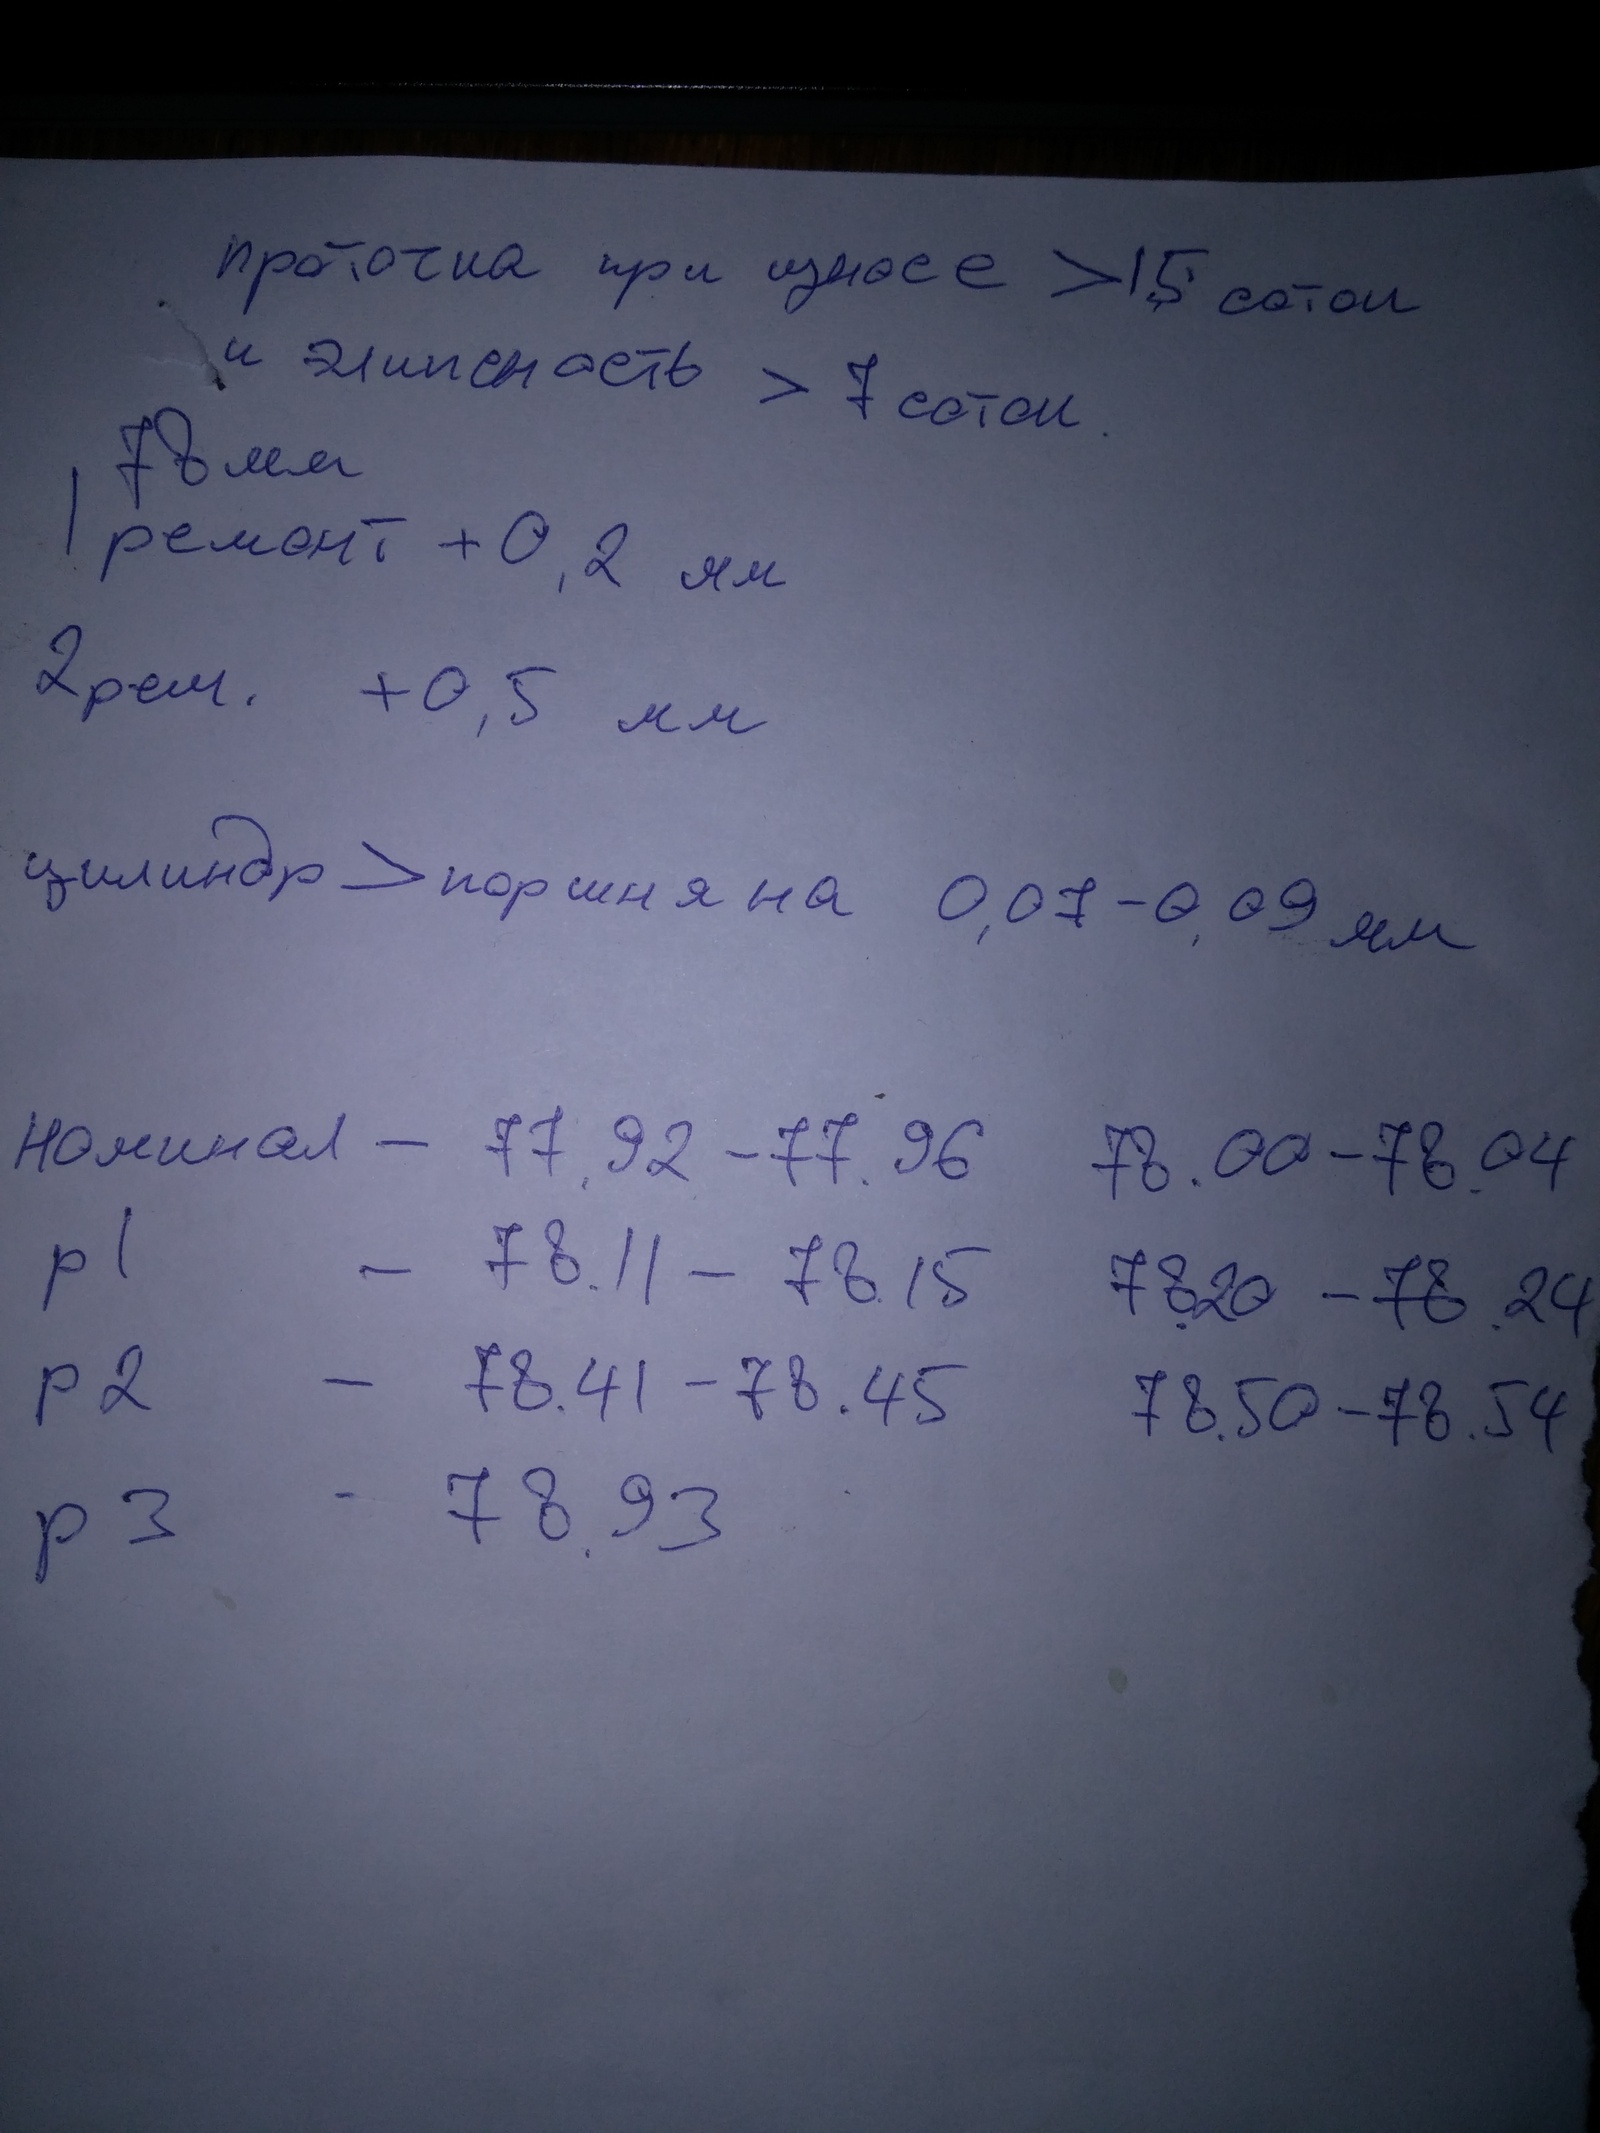 проточка при износе >15 соток
и элипсность > 7 соток.
78 мм
1 ремонт +0,2 мм
2 рем. +0,5 мм
цилиндр > поршня на 0,07-0,09 мм
номинал - 77.92 - 77.96 78.00 - 78.04
р1 - 78.11 - 78.15 78.20 - 78.24
р2 - 78.41 - 78.45 78.50 - 78.54
р3 - 78.93